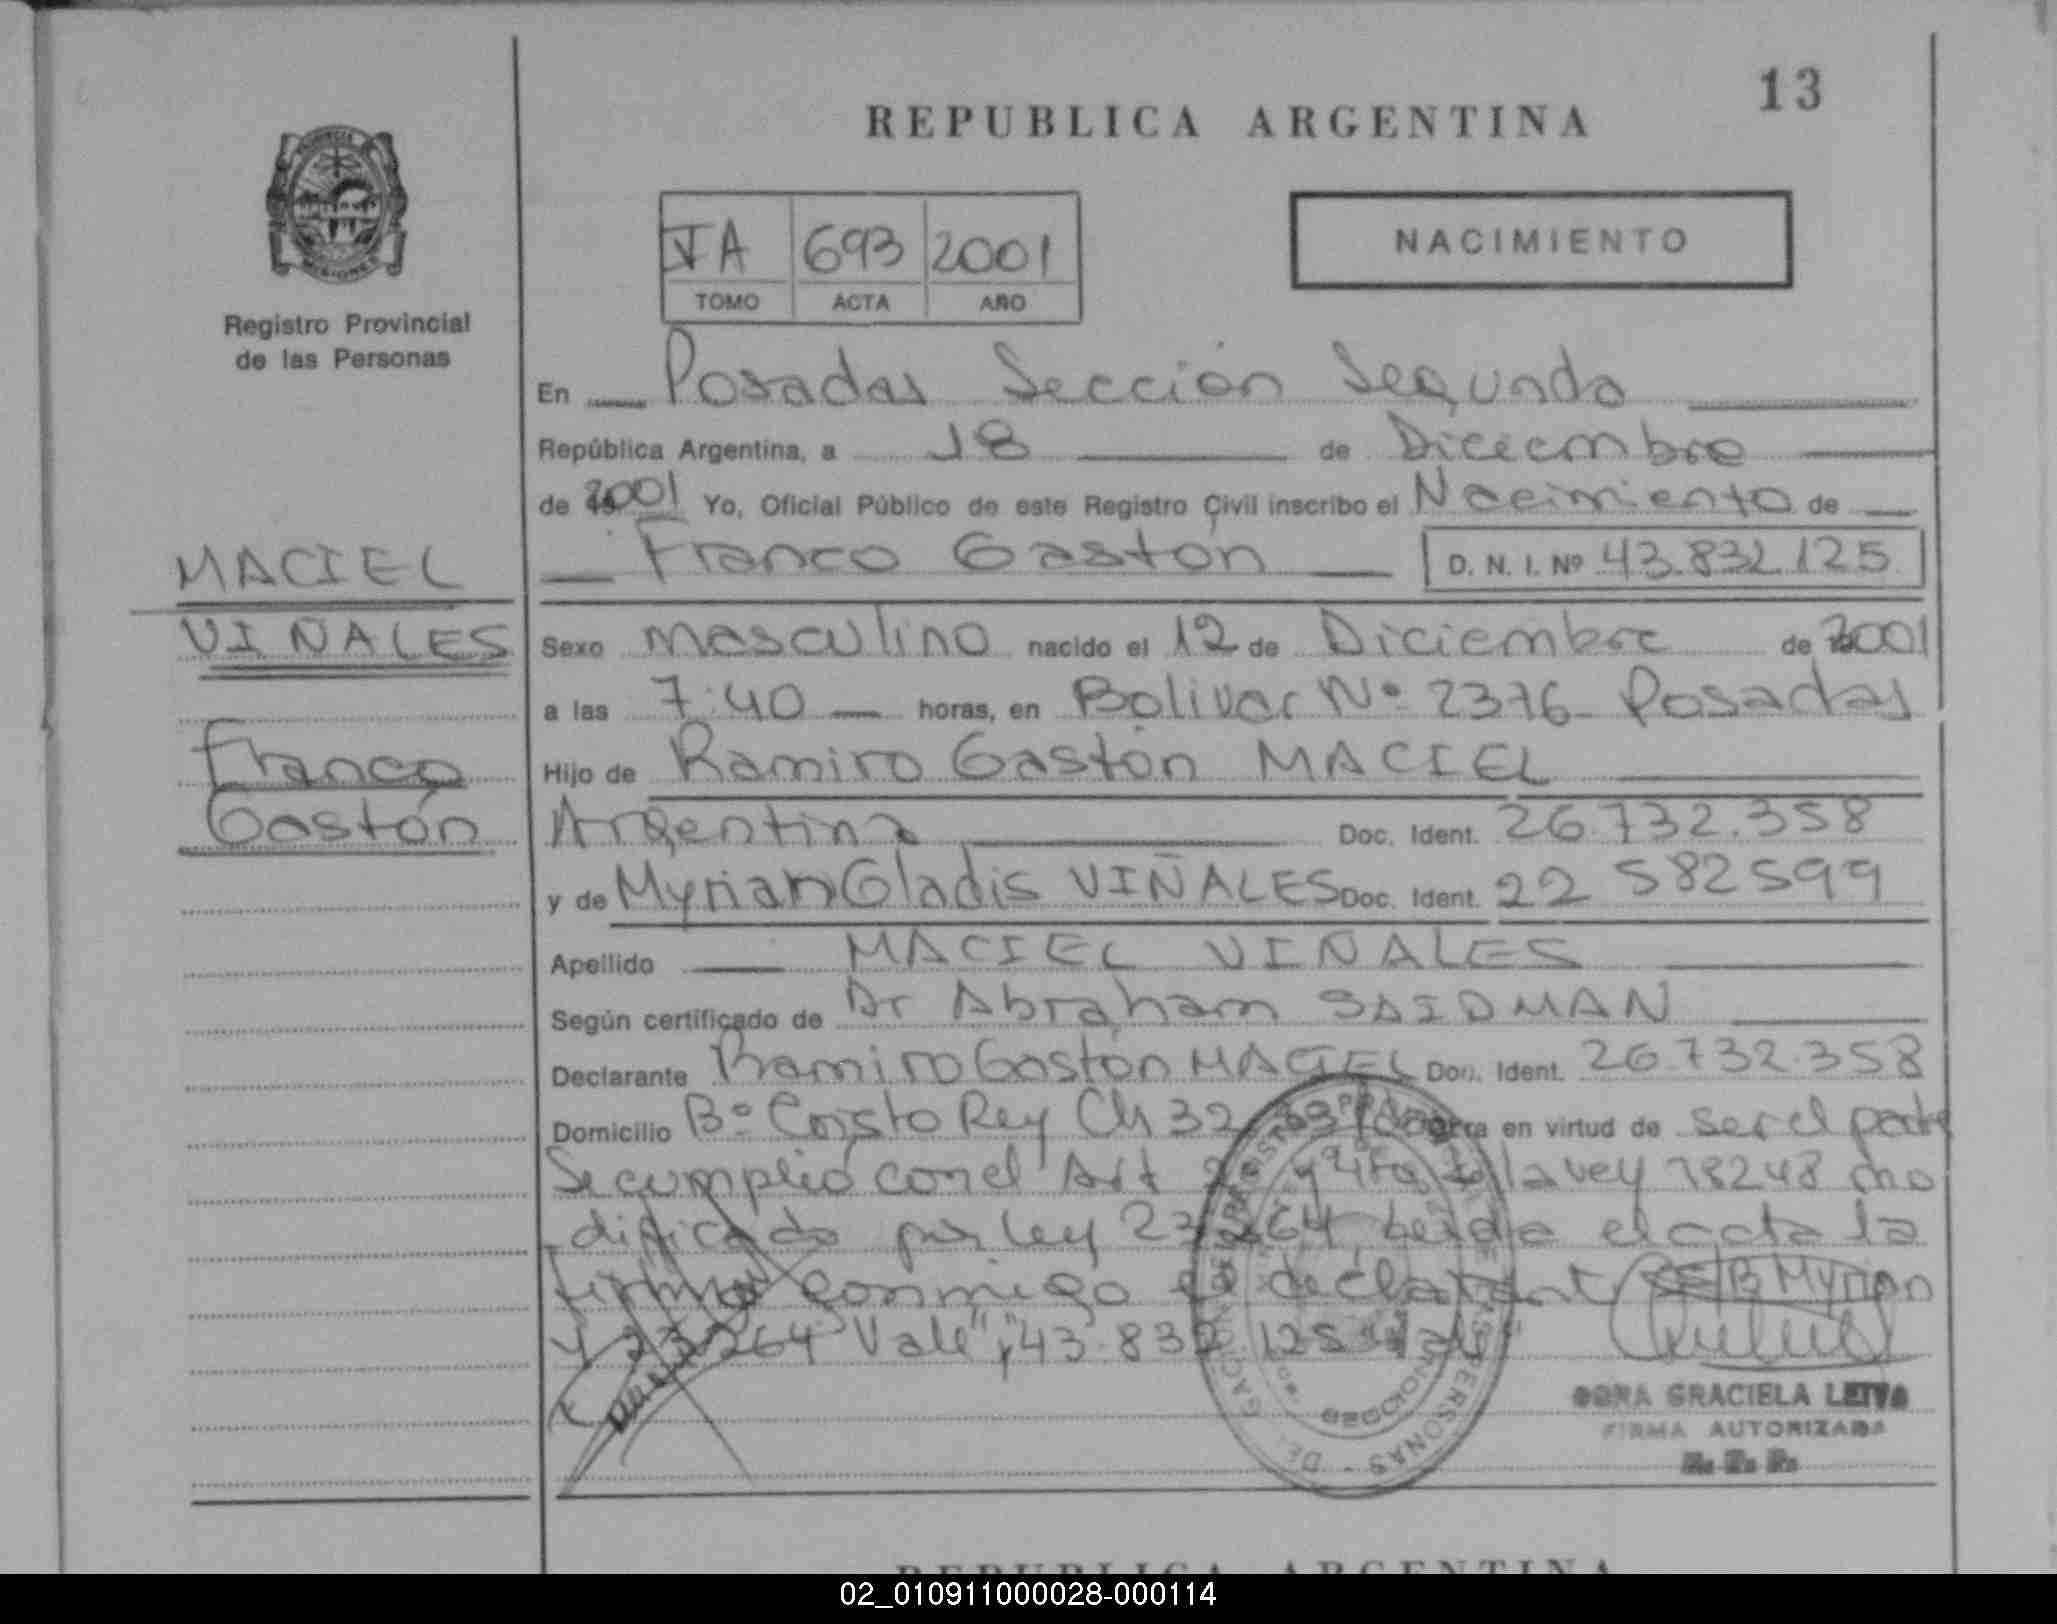 REPUBLICA ARGENTINA
13
VA 693 2001
TOMO ACTA AÑO
NACIMIENTO
MISIONES
Registro Provincial
de las Personas
En Posadas Sección Segunda
República Argentina, a 18 de Diciembre
de 2001 Yo, Oficial Público de este Registro Civil inscribo el Nacimiento de
Franco Gastón D. N. I. Nº 43.832.125
MACIEL
VIÑALES
Franco
Gastón
Sexo masculino nacido el 12 de Diciembre de 2001
a las 7:40 horas, en Bolivar Nº 2376 Posadas
Hijo de Ramiro Gastón MACIEL
Argentina Doc. Ident. 26.732.358
y de Myrian Gladis VIÑALES Doc. Ident. 22 582599
Apellido MACIEL VIÑALES
Según certificado de Dr Abraham SAIDMAN
Declarante Ramiro Gastón MACIEL Doc. Ident. 26.732.358
Domicilio Bº Cristo Rey Ch 32 en virtud de ser el padre
Se cumplió con el Art la ley 18248 mo
dificado por ley 23264 Leida el acta la
firma conmigo el declarant Myrian
y 23264 Vale", "43.832 125 Vale
DORA GRACIELA LEIVA
FIRMA AUTORIZADA
REPUBLICA ARGENTINA
02_010911000028-000114